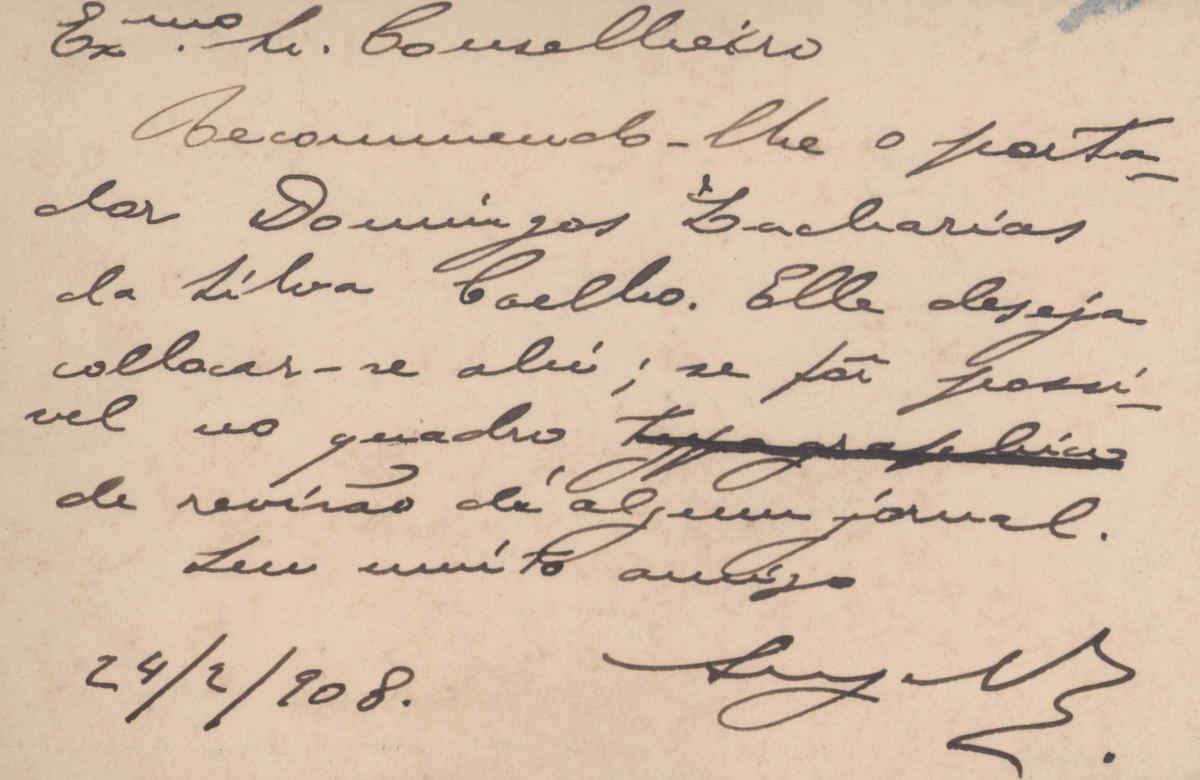 Ex.mo Sr. Conselheiro
Recommendo-lhe o porta-
dor Domingos Zacharias
da Silva Coelho. Elle deseja
collocar-se ahi; se fôr possi-
vel no quadro typographico
de revisão d'algum jornal.
Seu muito amigo
24/2/908.